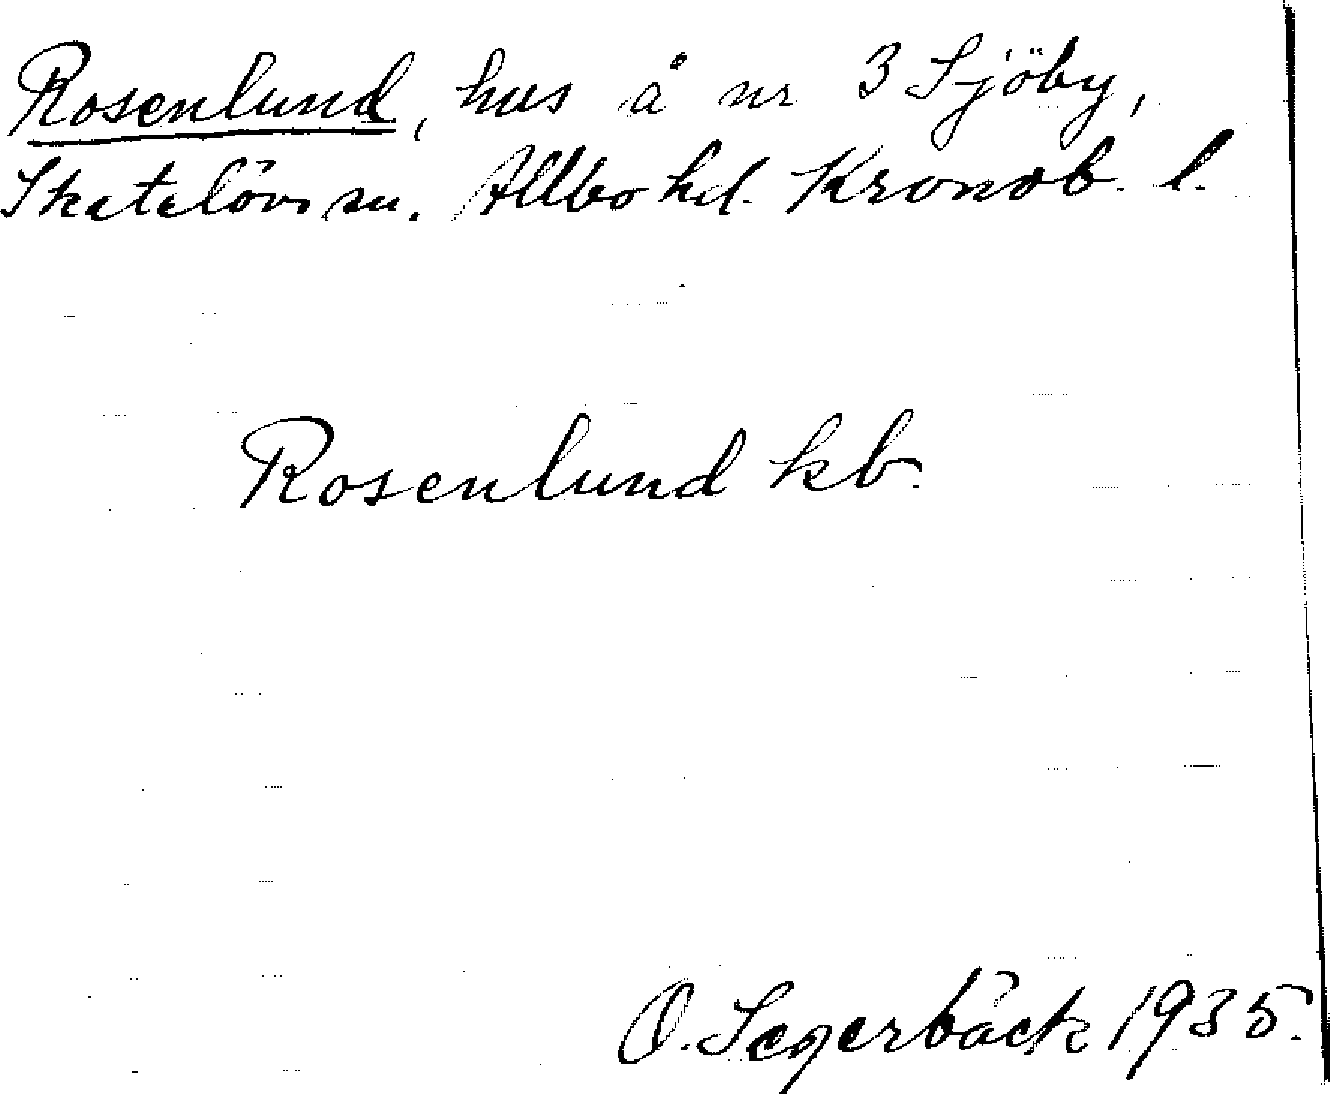 Rosenlund, hus å nr 3 Sjöby,
Skatelövs sn. Allbo hd. Kronob. l.
Rosenlund kb.
O. Segerbäck 1935.